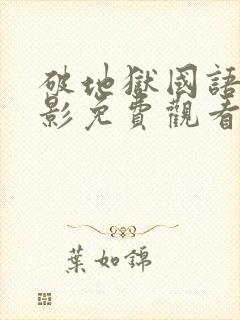 破地獄國語
影免費觀看
葉如錦